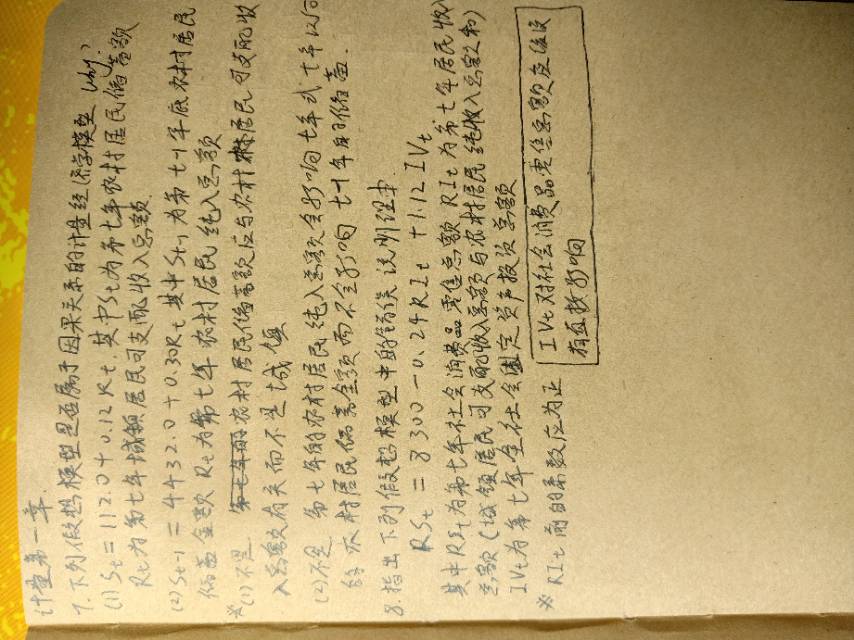 计量第一章.
7. 下列假想模型是否属于因果关系的计量经济学模型 (why?)
(1) St = 112.0 + 0.12 Rt. 其中St为第七年农村居民储蓄额
Rt为第七年城镇居民可支配收入总额.
(2) St-1 = 4432.0 + 0.30Rt 其中 St-1 为第七-1年底农村居民
储蓄余额 Rt为第七年农村居民纯入总额
*(1) 不是 农村居民储蓄额应与农村居民可支配收
入总额有关而不是城镇
(2) 不是 第七年的农村居民纯入总额会影响七年或七年以
的农村居民储蓄余额而不会影响七-1年的储蓄.
8. 指出下列假想模型中的错误 说明理由.
RSt = 8300 - 0.24RIt + 1.12 IVt
其中RSt为第七年社会消费品零售总额 RIt为第七年居民收入
总额 (城镇居民可支配收入总额与农村居民纯收入总额和)
IVt为第七年全社会固定资产投资总额
※ RIt前的系数应为正
IVt对社会消费品零售总额应
有直接影响